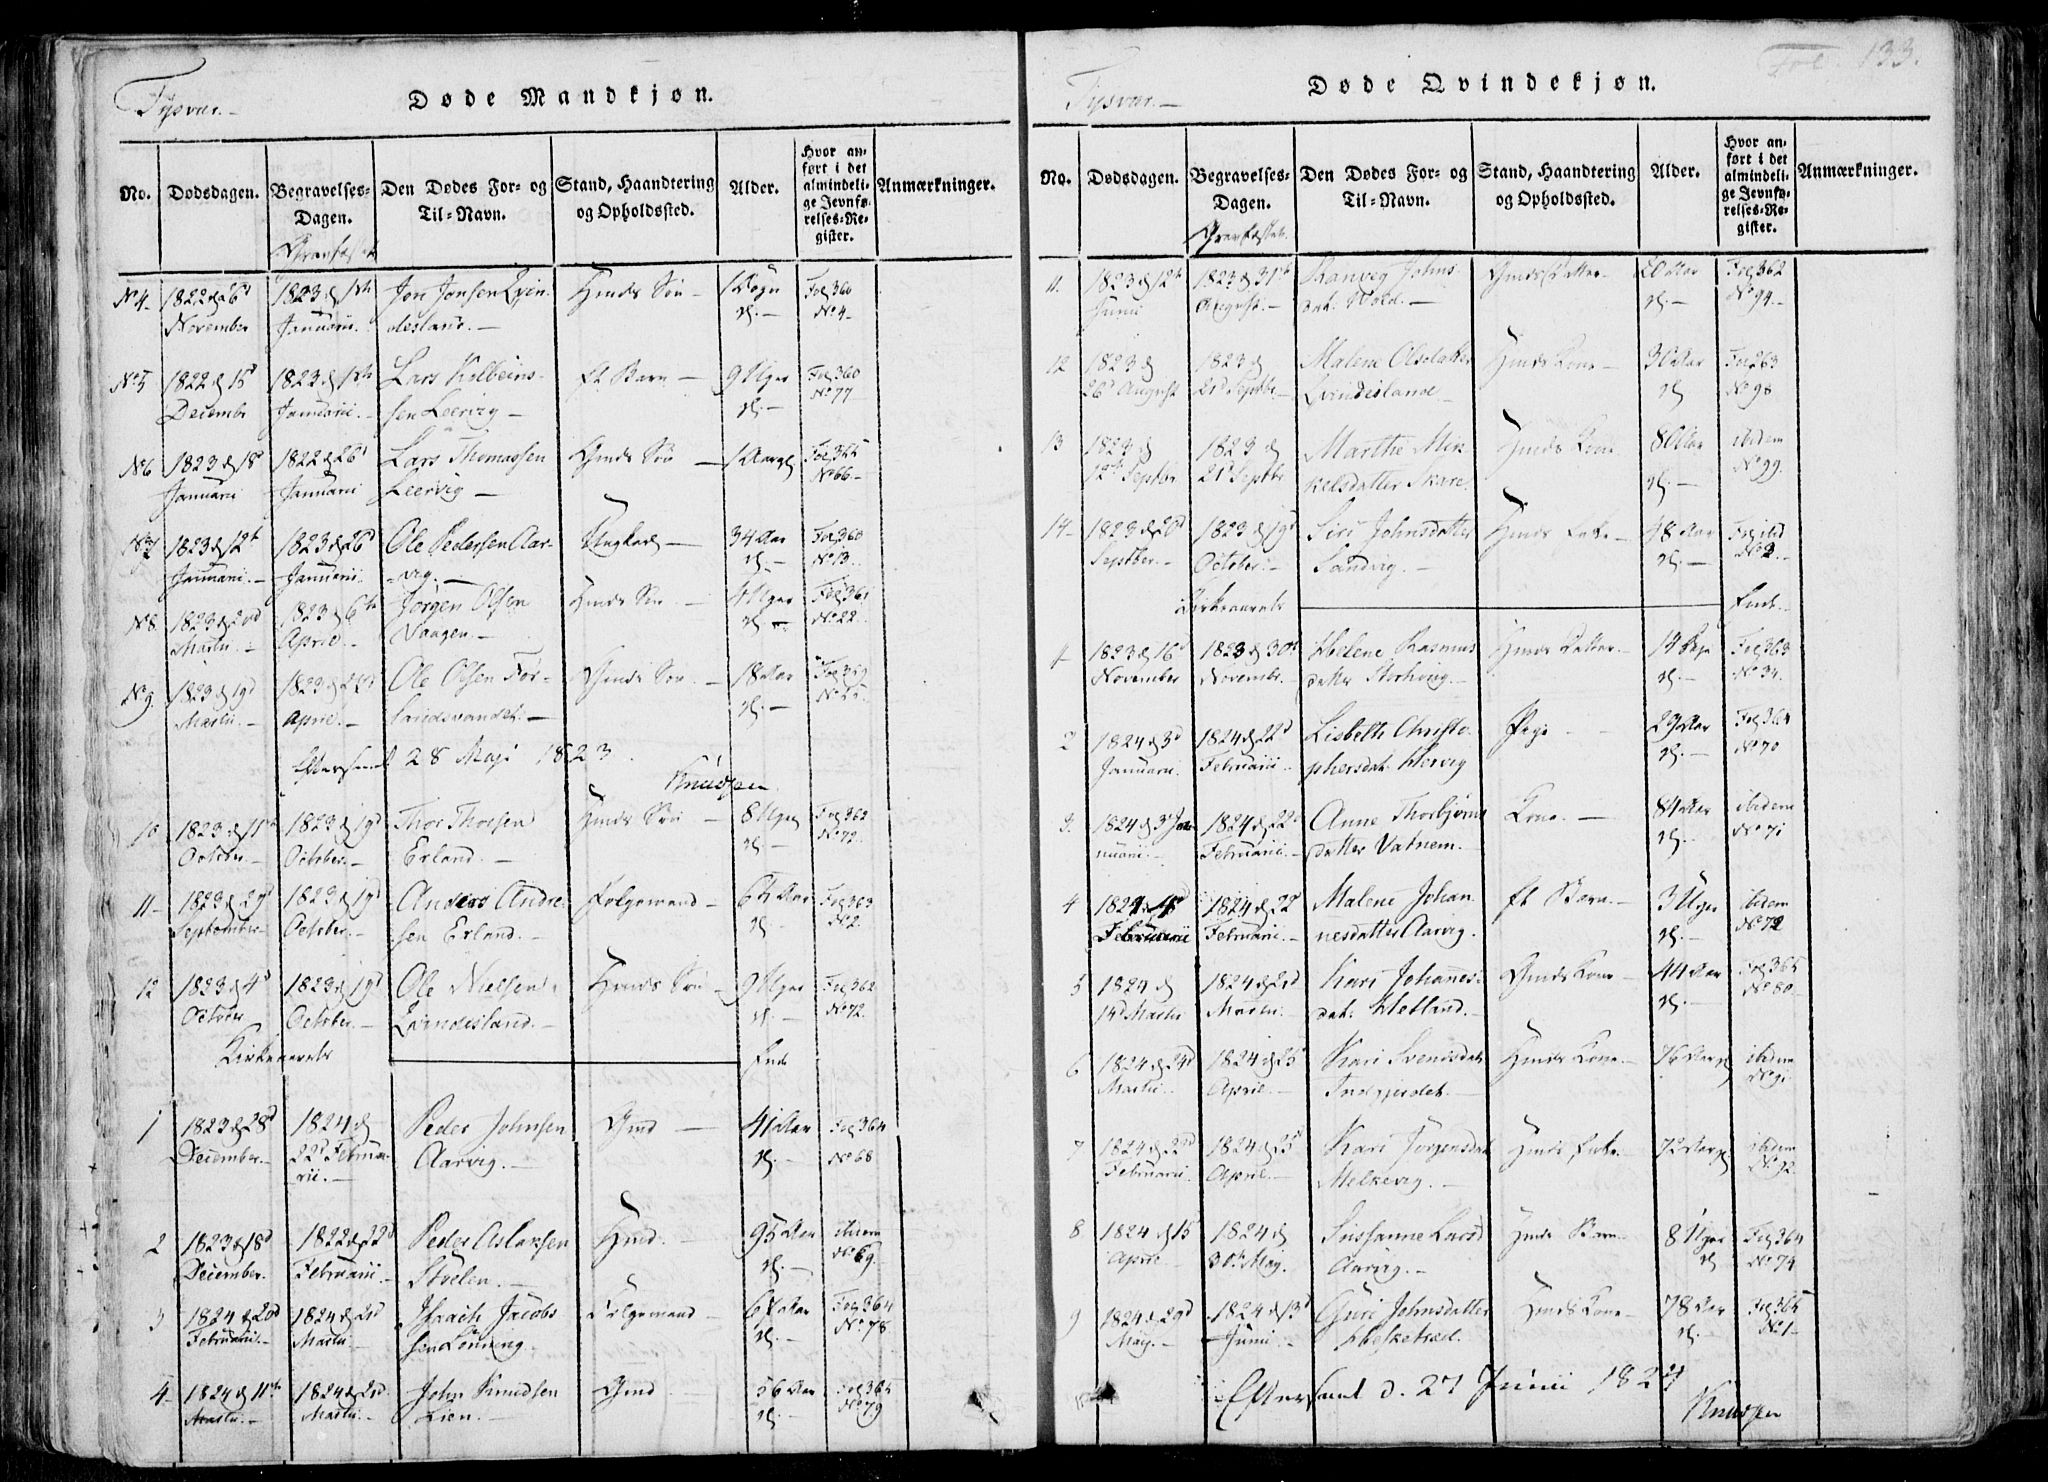 Tysvær.
Døde Mandkjøn.
No. Dødsdagen. Begravelses-Dagen. Den Dødes For- og Til-Navn. Stand, Haandtering og Opholdssted. Alder. Hvor anført i det almindelige Jevnførelses-Register. Anmærkninger.
No 4 1822 d 26d November 1823 d 1ste Januarii Jon Jonsen Qvindesland. Gmds Søn 1 Døgn Fol 360 No 4
No 5 1822 d 15d Decembr 1823 d 1ste Januarii Lars Kolbeinssen Leervig Et Barn 9 Uger Fol 360 No 77
No 6 1823 d 18d Januarii 1822 d 26d Januarii Lars Thomassen Leervig Gmds Søn 1 Aar Fol 365 No 66
No 7 1823 d 12te Januarii 1823 d 26d Januarii Ole Pedersen Aarvig. Ungkarl 34 Aar Fol 360 No 13.
No 8 1823 d 20d Martii 1823 d 6te April Jørgen Olsen Vaagen. Gmds Søn 4 Uger Fol 361 No 22.
No 9 1823 d 19d Martii. April. Ole Olsen Gmds Søn 18 Aar
Efterseet 28 Maji 1823.
Knudsen
10 1823 d 11te October 1823 d 19d October Thor Thorsen Erland. Gmds Søn 8 Uger Fol 362 No 72.
11 1823 d 29d September 1823 d 19d October. Anders Andresen Erland. Folgemand 64 Aar Fol 363 No 2.
12 1823 d 4d October 1823 d 19d October. Ole Nielsen Qvindesland. Gmds Søn 9 Uger Fol 362 No 72.
Kirkeaarets Ende
1 1823 d 28d December 1824 d 22d Februarii. Peder Johnsen Aarvig. Gmd 41 Aar Fol 364 No 68
2 1823 d 18d December. 1822 d 22d Februarii Peder Aslaksen Støelen. Gmd. 95 Aar ibidem No 69.
3 1824 d 20d Februarii. 1824 d 21d Martii Isaach Jacobssen Folgemand 64 Aar Fol 364 No 78
4 1824 d 11te Martii. 1824 d 21d Martii. John Knudsen Lien. Gmd 56 Aar Fol 365 No 79
Fol. 133.
Tysvær.
Døde Qvindekjøn.
No. Dødsdagen. Begravelses-Dagen. Den Dødes For- og Til-Navn. Stand, Haandtering og Opholdssted. Alder. Hvor anført i det almindelige Jevnførelses-Register. Anmærkninger.
11. 1823 d 12te Junii 1823 d 31te August. Ranveg Johnsdat. Gmds Datter 20 Aar Fol 362 No 94
12 1823 d 26d August 1823 d 21d Septbr. Malene Olsdatter Qvindesland Gmds Kone 30 Aar Fol 263 No 98
13 1823 d 12te Septbr 1823 d 21d Septbr Marthe Mikkelsdatter Skare. Gmds Kone 80 Aar ibidem No 99.
14 1823 d 20d Septber. 1823 d 19d October. Siri Johnsdatter Sandvig. Gmds Enke 48 Aar Fol ibid No 2
Kirkeaarets Ende.
1 1823 d 16d November 1823 d 30te Novembr. Helene Rasmusdatter Gmds Datter Fol 363 No 34.
2 1824 d 3d Januarii. 1824 d 22d Februarii. Lisbeth Christophersdat. Hervig Pige 29 Aar Fol 364 No 70
3. 1824 d 3d Januarii. 1824 d 22d Februarii. Anne Thorbjørnsdatter Vatnem. Kone 84 Aar ibidem No 71
4 1824 d 4d Februarii 1824 d 22d Februarii. Malene Johannesdatter Aarvig. Et Barn 3 Uger ibidem No 72
5 1824 d 14d Martii 1824 d 21d Martii. Kari Johannesdat: Hetland. Gmds Kone 44 Aar Fol 365 No 80.
6 1824 d 24d Martii. 1824 d 25d April. Kari Svendsdat Indgjerdet. Gmds Kone 76 Aar ibidem No 91.
7 1824 d 22d Februarii. 1824 d 25d April. Kari Jørgensdat Melkevig. Gmds Enke 72 Aar ibidem No 92.
8 1824 d 15 April. 1824 d 30te May. Sussanne Larsd Aarvig. Gmds Barn 8 Uger Fol 364 No 74
9 1824 d 29d May. 1824 d 13d Junii Guri Johnsdatter Gmds Kone 78 Aar Fol 365 No 1
Efterseet d. 27 Junii 1824
Knudsen